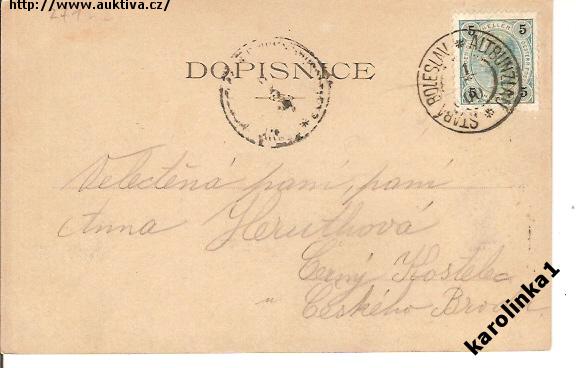 http://www.auktiva.cz/
DOPISNICE
5 HELLER 5
5 5
STARÁ BOLESLAV * ALTBUNZLAU *
Veletěná paní, paní
Anna Heruthová
Černý Kostelec
u Českého Brodu
karolinka1